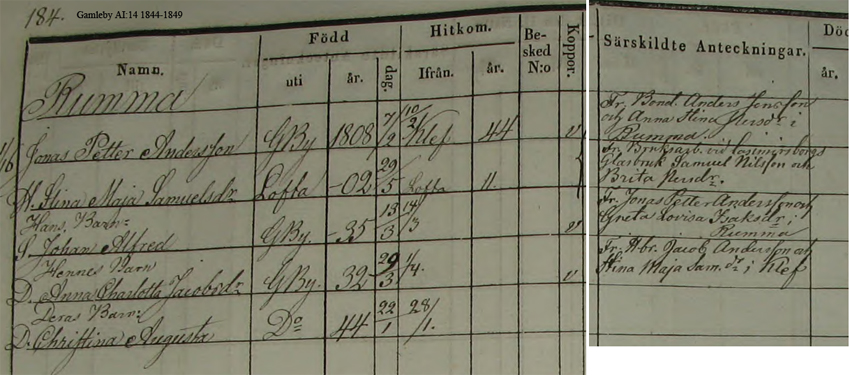 184.
Gamleby AI:14 1844-1849
Namn. Född Hitkom. Be-sked N:o Koppor. Särskildte Anteckningar. Död
uti år. dag. Ifrån. år. år.
Rumma
Fr. Bond. Anders Jonsson
och Anna Stina Persdr i
Rumma.
1/16 Jonas Petter Andersson GBy 1808 7/2 Klef 44 v
Fr. Bruksarb. vid Casimirsborgs
Glasbruk Samuel Nilsson och
Brita Persdr.
H. Stina Maja Samuelsdr Loftta -02 29/5 Loftta 11.
Hans Barn
S. Johan Alfred GBy. -35 13/3 14/3 v
Fr. Jonas Petter Andersson och
Greta Lovisa Isaksdr i
Rumma
Hennes Barn
D. Anna Charlotta Jacobsdr GBy. 32 29/3 1/4. v
Fr. Hbr. Jacob Andersson och
Stina Maja Sam.dr i Klef
Deras Barn
D. Christina Augusta Do 44 22/1 28/1.